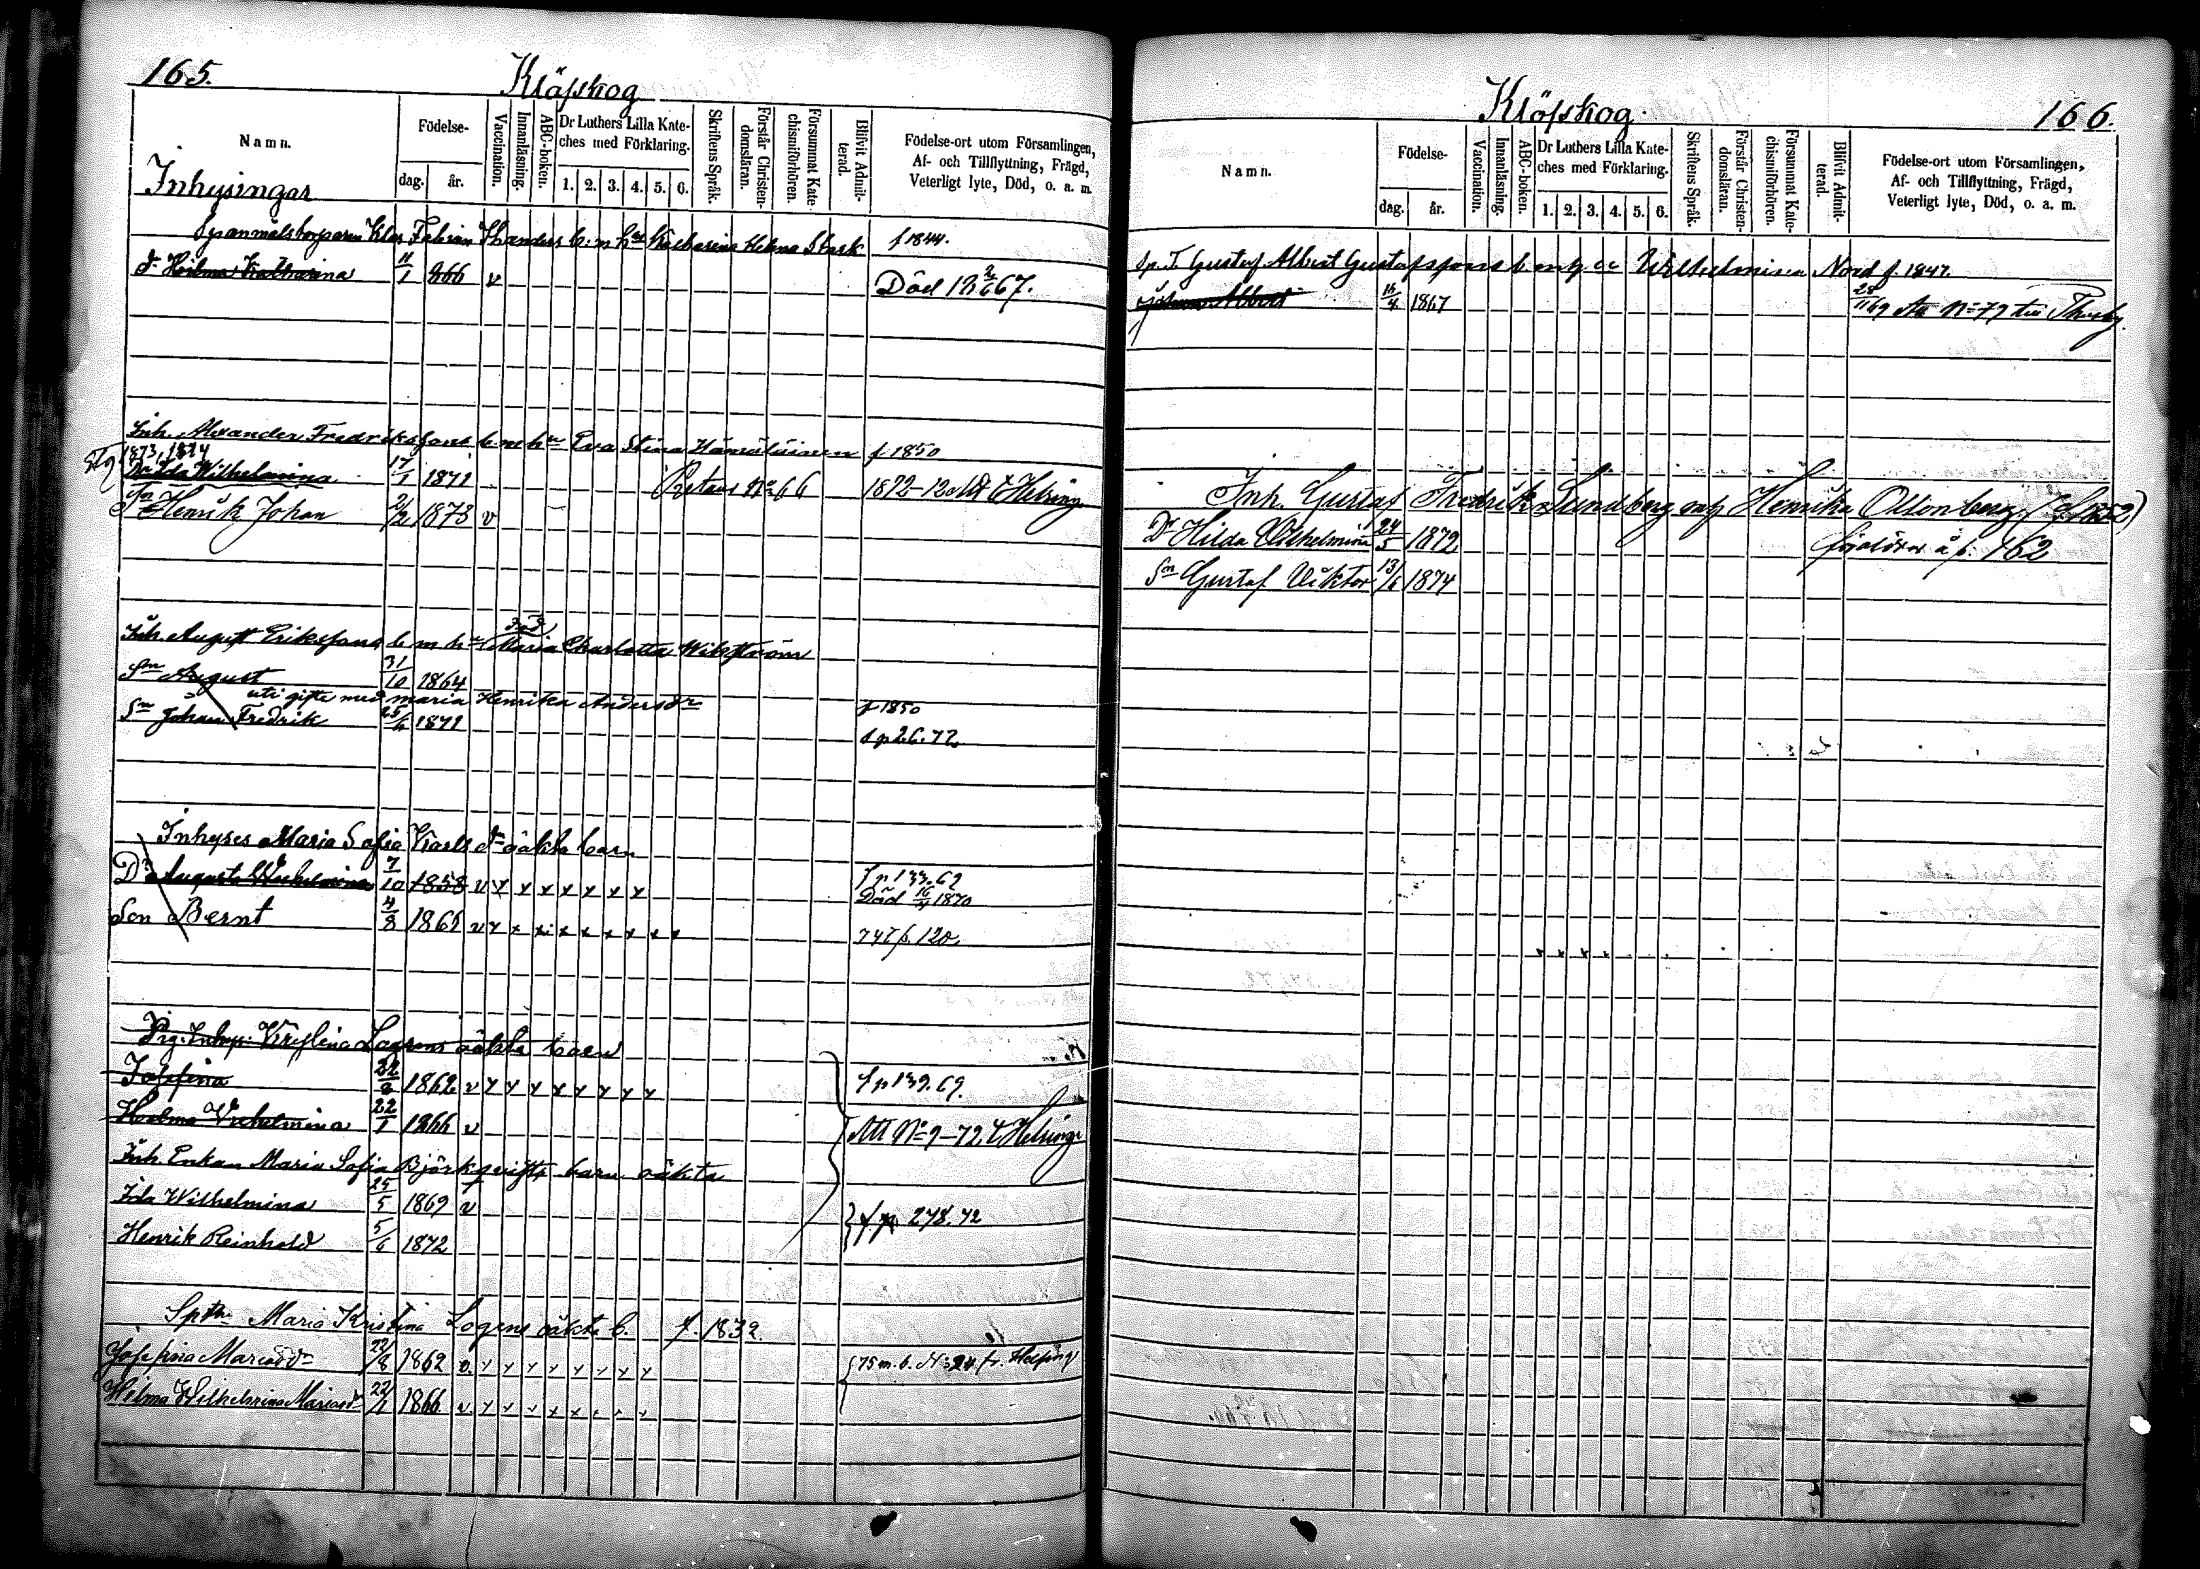 165.
Klöfskog
Namn.
Födelse-
dag.
år.
Vaccination.
Innanläsning.
ABC-boken.
Dr Luthers Lilla Kate-
ches med Förklaring.
1. 2. 3. 4. 5. 6.
Skriftens Språk.
Förstår Christen-
domsläran.
Försummat Kate-
chismiförhören.
Blifvit Admit-
terad.
Födelse-ort utom Församlingen,
Af- och Tillflyttning, Frägd,
Veterligt lyte, Död, o. a. m.
Inhysingar
Fabian b. m. h. Katharina Helena Stark f 1844.
dr Hilma Katharina 11/1 866 v Död 18 67.
Inh. Alexander Fredrikssons b. m. hu Eva Stina f 1850
1873, 1874
Ida Wilhelmina 17/1 1871 Retour No 66 1872-12 Att t Helsing
Sn Henrik Johan 2/2 1873 v
Inh. August Erikssons b m hu Maria Charlotta Wikström
Sn August 31/10 1864
uti gifte med Maria Henrika Andersdr f 1850
Sn Johan Fredrik 25/6 1871
Inhyses Maria Sofia Karlsdr oäkta barn
Dr Augusta Wilhelmina 7/10 1858 v x x x x x x x f p 133.69
Död 16/4 1870
Son Bernt 4/8 1861 v x x x x x x x x x
Pig. Inhys: Kristina Lagrens oäkta barn
Josefina 22/8 1862 v x x x x x x x x f p 139.69.
Hilma Wilhelmina 22/1 1866 v Att No 9-72 t Helsinge
Inh. Enkan Maria Sofia Björkqvists barn oäkta
Ida Wilhelmina 25/5 1869 v
Henrik Reinhold 5/6 1872 f p. 278.72
Maria Kristina Logens oäkta b. f. 1832.
Josefina Mariasdr 22/8 1862 v x x x x x x x x 75 m. b. N: 24 fr. Helsing
Hilma Wilhelmina Mariasdr 22/1 1866 v x x x x x x x x
Klöfskog.
166.
Namn.
Födelse-
dag.
år.
Vaccination.
Innanläsning.
ABC-boken.
Dr Luthers Lilla Kate-
ches med Förklaring.
1. 2. 3. 4. 5. 6.
Skriftens Språk.
Förstår Christen-
domsläran.
Försummat Kate-
chismiförhören.
Blifvit Admit-
terad.
Födelse-ort utom Församlingen,
Af- och Tillflyttning, Frägd,
Veterligt lyte, Död, o. a. m.
Sp. T. Gustaf Albert Gustafssons b m h Wilhelmina Nord f. 1847.
Johan Albert 16/4 1867 28/11 69 Att No 79 till Thusby.
Inh. Gustaf Fredrik Sundberg Henrika Ottonberg
Dr Hilda Wilhelmina 24/5 1872 föräldrar å p. 162
Sn Gustaf Viktor 13/6 1874